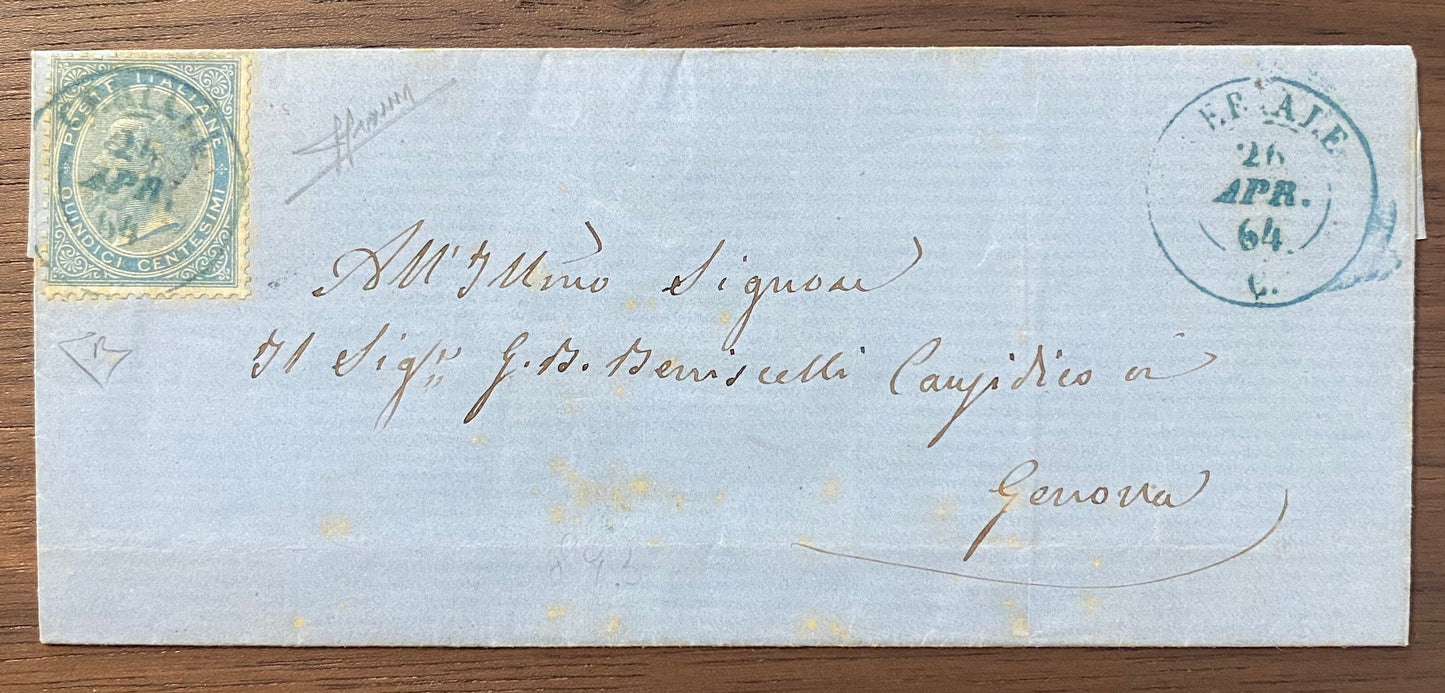 POSTE ITALIANE
QUINDICI CENTESIMI
APR.
64
26
APR.
64
C.
All' Illmo Signore
Il Sigr G. B. Beniscelli Causidico in
Genova
893